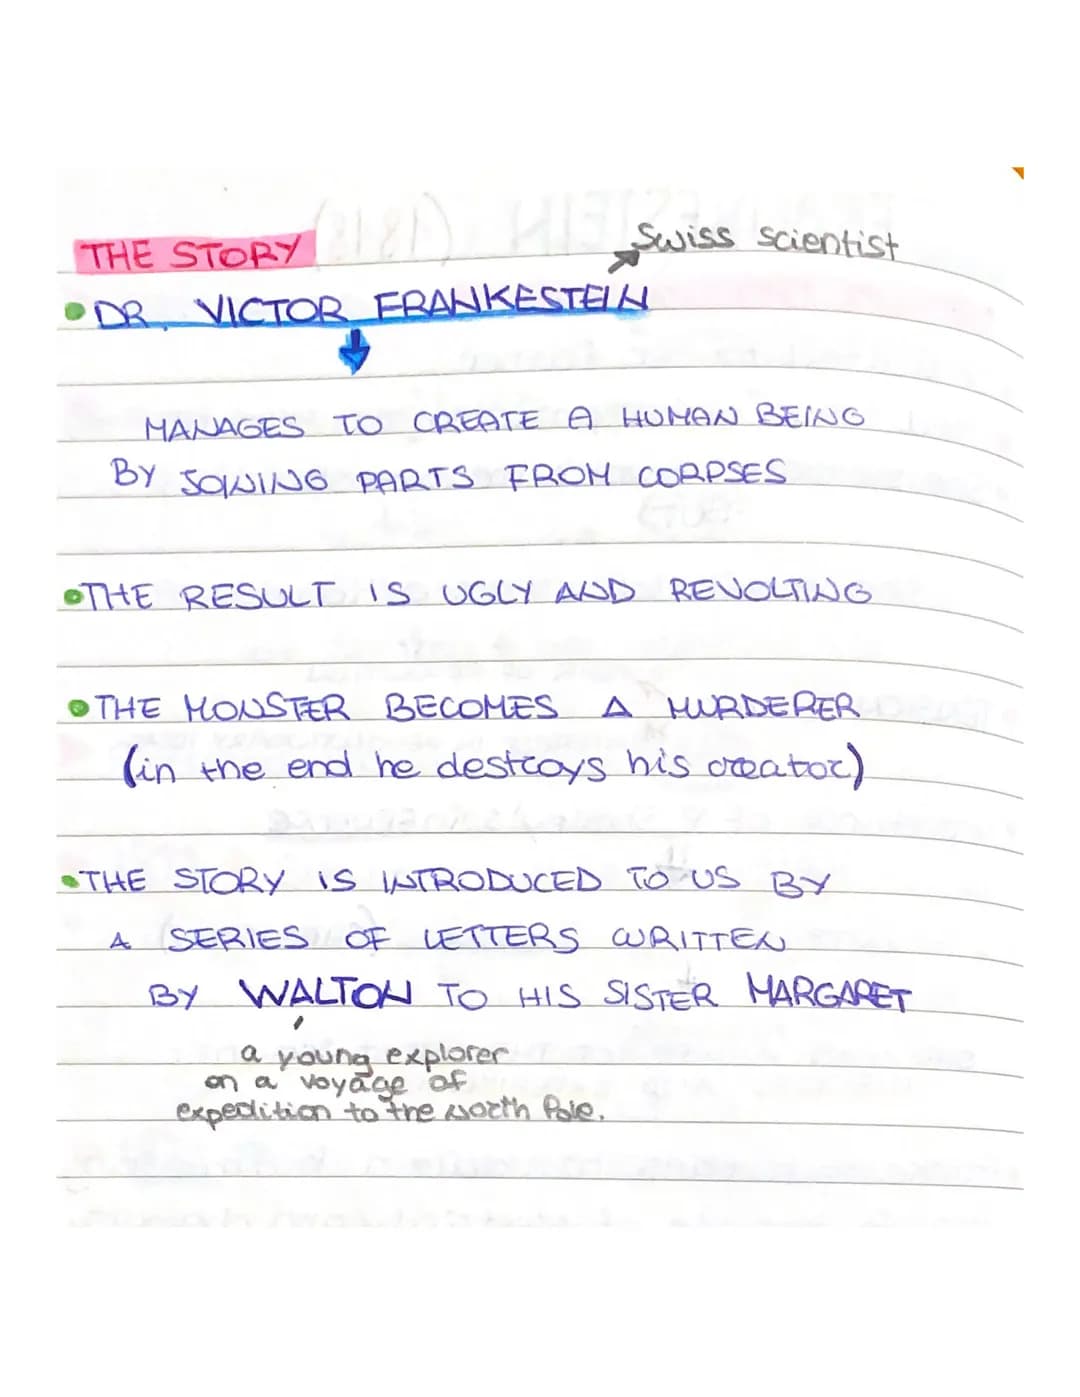 Swiss scientist
THE STORY
DR. VICTOR FRANKESTEIN
MANAGES TO CREATE A HUMAN BEING
BY JOWING PARTS FROM CORPSES
THE RESULT IS UGLY AND REVOLTING
THE MONSTER BECOMES A MURDERER
(in the end he destroys his creator)
THE STORY IS INTRODUCED TO US BY
A SERIES OF LETTERS WRITTEN
BY WALTON TO HIS SISTER MARGARET
a young explorer
on a voyage of
expedition to the North Pole.